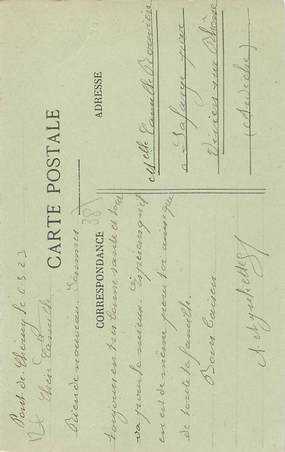 CARTE POSTALE
CORRESPONDANCE
ADRESSE
Pont de Chéruy le 6 5 23
Cher Camille
Rien de nouveau sommes
toujours en très bonne santé et tout
va pour le mieux. Espérons qu'il
en est de même pour toi ainsi que
de toute la famille.
Bons baisers
Melle Camille
a Lafarge par
Viviers sur Rhône
(Ardèche)